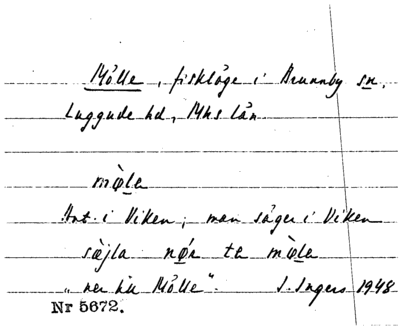 Mölle, fiskläge i Brunnby sn,
Luggude hd, Mhs län
mø̀le
Ant. i Viken; man säger i Viken
sæjla nør te mø̀le
"ner till Mölle". I. Ingers 1948
Nr 5672.